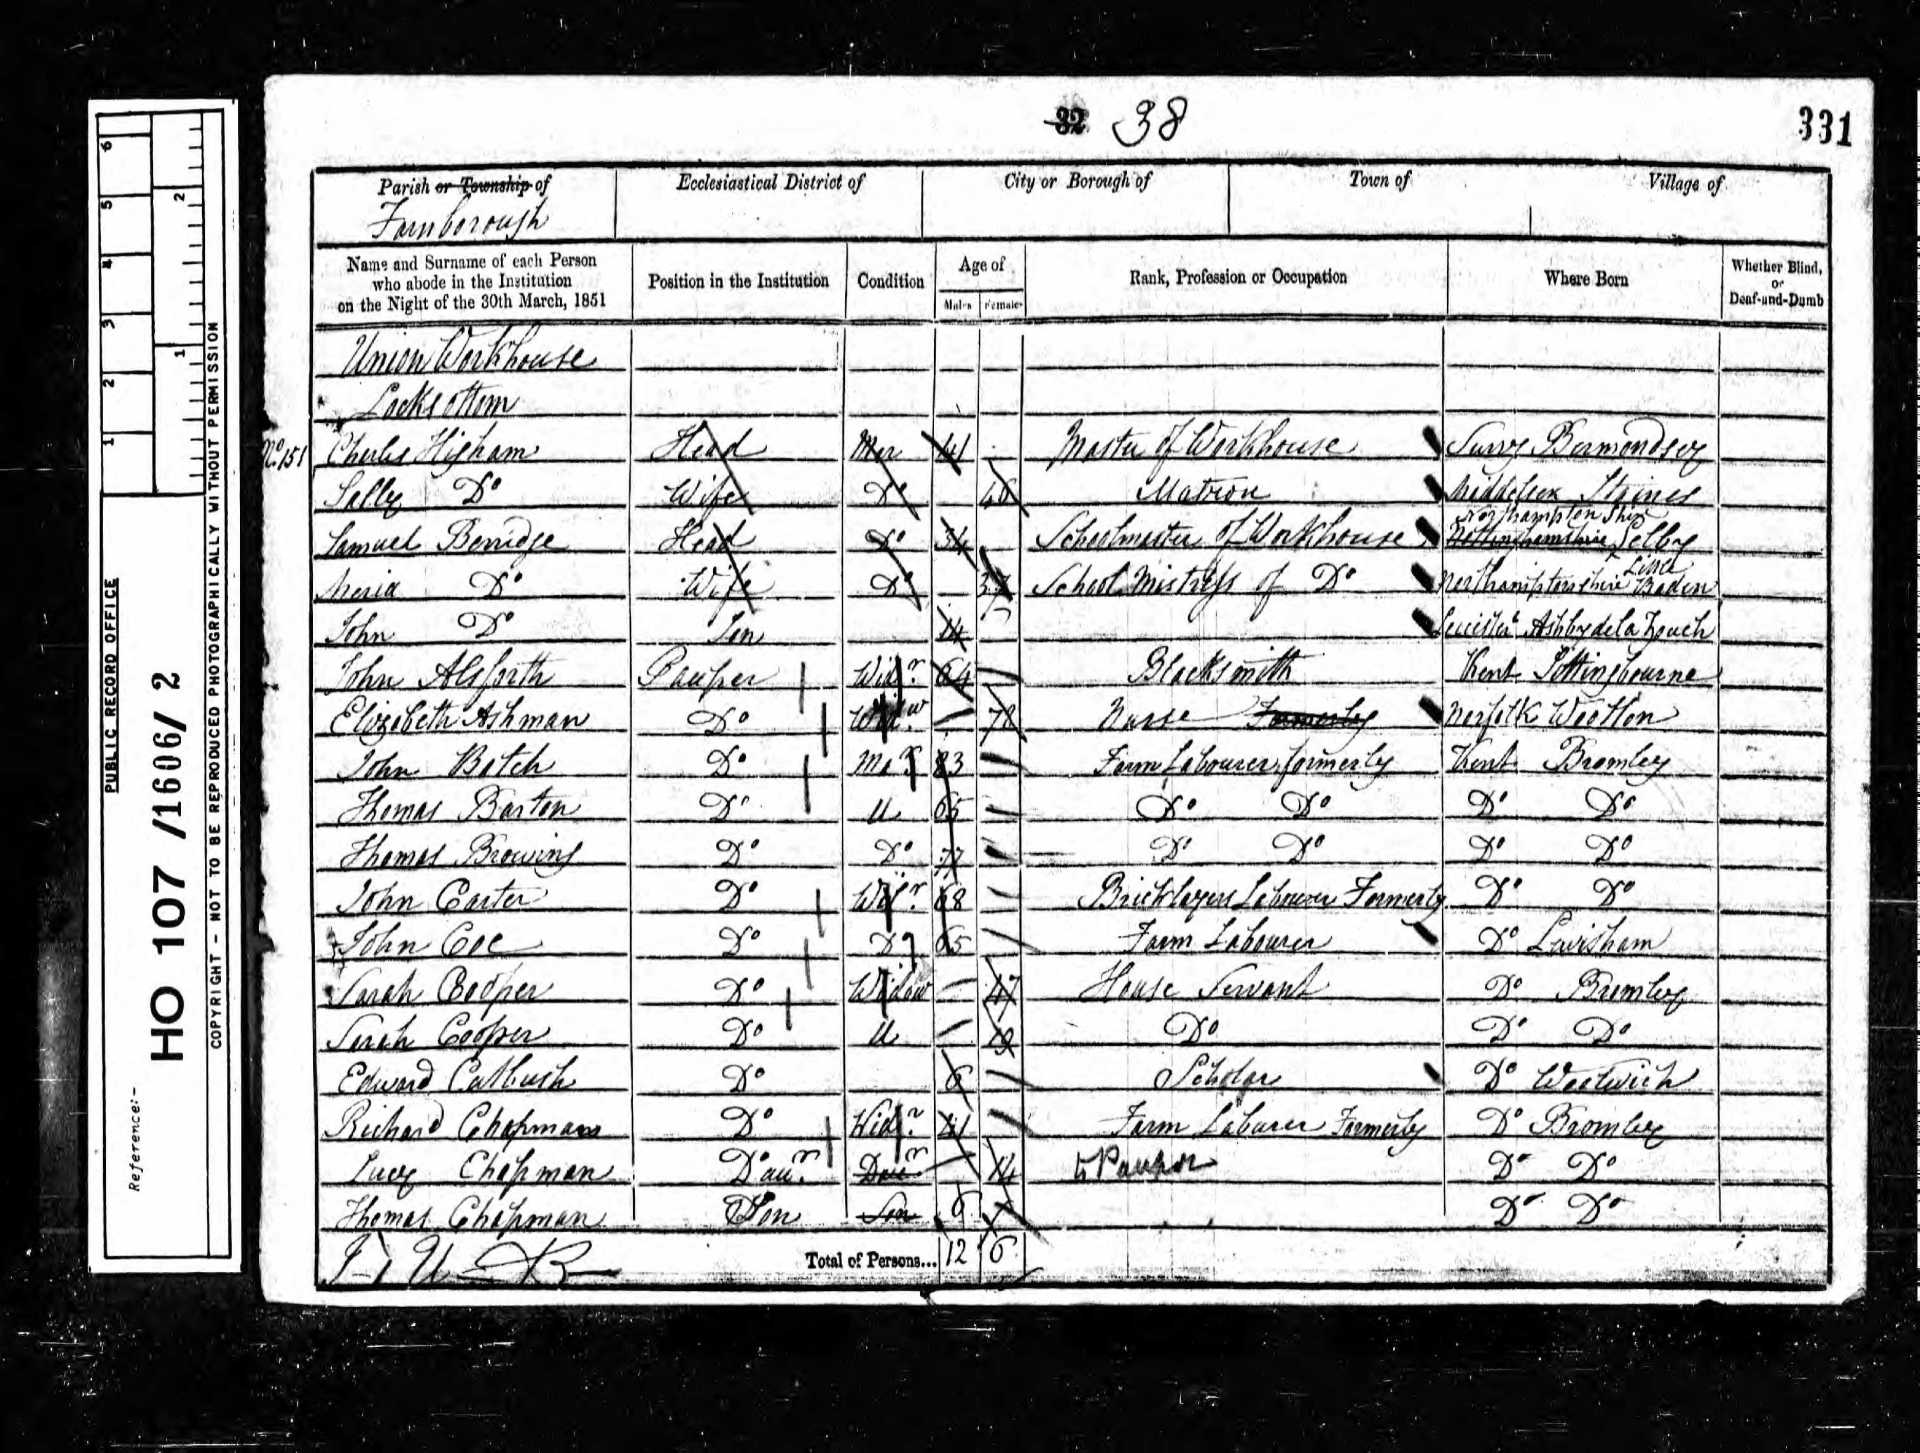 32 38
331
Parish or Township of
Farnborough
Ecclesiastical District of
City or Borough of
Town of
Village of
Name and Surname of each Person who abode in the Institution on the Night of the 30th March, 1851
Position in the Institution
Condition
Age of
Males
Females
Rank, Profession or Occupation
Where Born
Whether Blind, or Deaf-and-Dumb
Union Workhouse
Locksbottom
No. 151 Charles Higham Head Mar 41 Master of Workhouse Surry Bermondsey
Sally Do Wife Do 46 Matron Middlesex Staines
Northampton Shire
Samuel Berridge Head Do 34 Schoolmaster of Workhouse Nottinghamshire Selby
Maria Do Wife Do 37 School Mistress of Do Northamptonshire
John Do Son 14 Leicester Ashby de la Zouch
John Alsforth Pauper Widr. 64 Blacksmith Kent
Elizabeth Ashman Do Widw. 78 Nurse Formerly Norfolk Wootton
John Batch Do Mar 83 Farm Labourer formerly Kent Bromley
Thomas Barton Do U 65 Do Do Do Do
Thomas Browing Do Do 77 Do Do Do Do
John Carter Do Widr. 68 Bricklayers Labourer Formerly Do Do
John Coe Do Do 65 Farm Labourer Do Lewisham
Sarah Cooper Do Widow 47 House Servant Do Bromley
Sarah Cooper Do U 19 Do Do Do
Edward Cutbush Do 6 Scholar Do Woolwich
Richard Chapman Do Widr. 41 Farm Labourer Formerly Do Bromley
Lucy Chapman Daur. Daur 14 to Pauper Do Do
Thomas Chapman Son Son 6 Do Do
Total of Persons... 12 6
6 5 4 3 2 1
2 1
PUBLIC RECORD OFFICE
Reference:-
HO 107 /1606/ 2
COPYRIGHT - NOT TO BE REPRODUCED PHOTOGRAPHICALLY WITHOUT PERMISSION